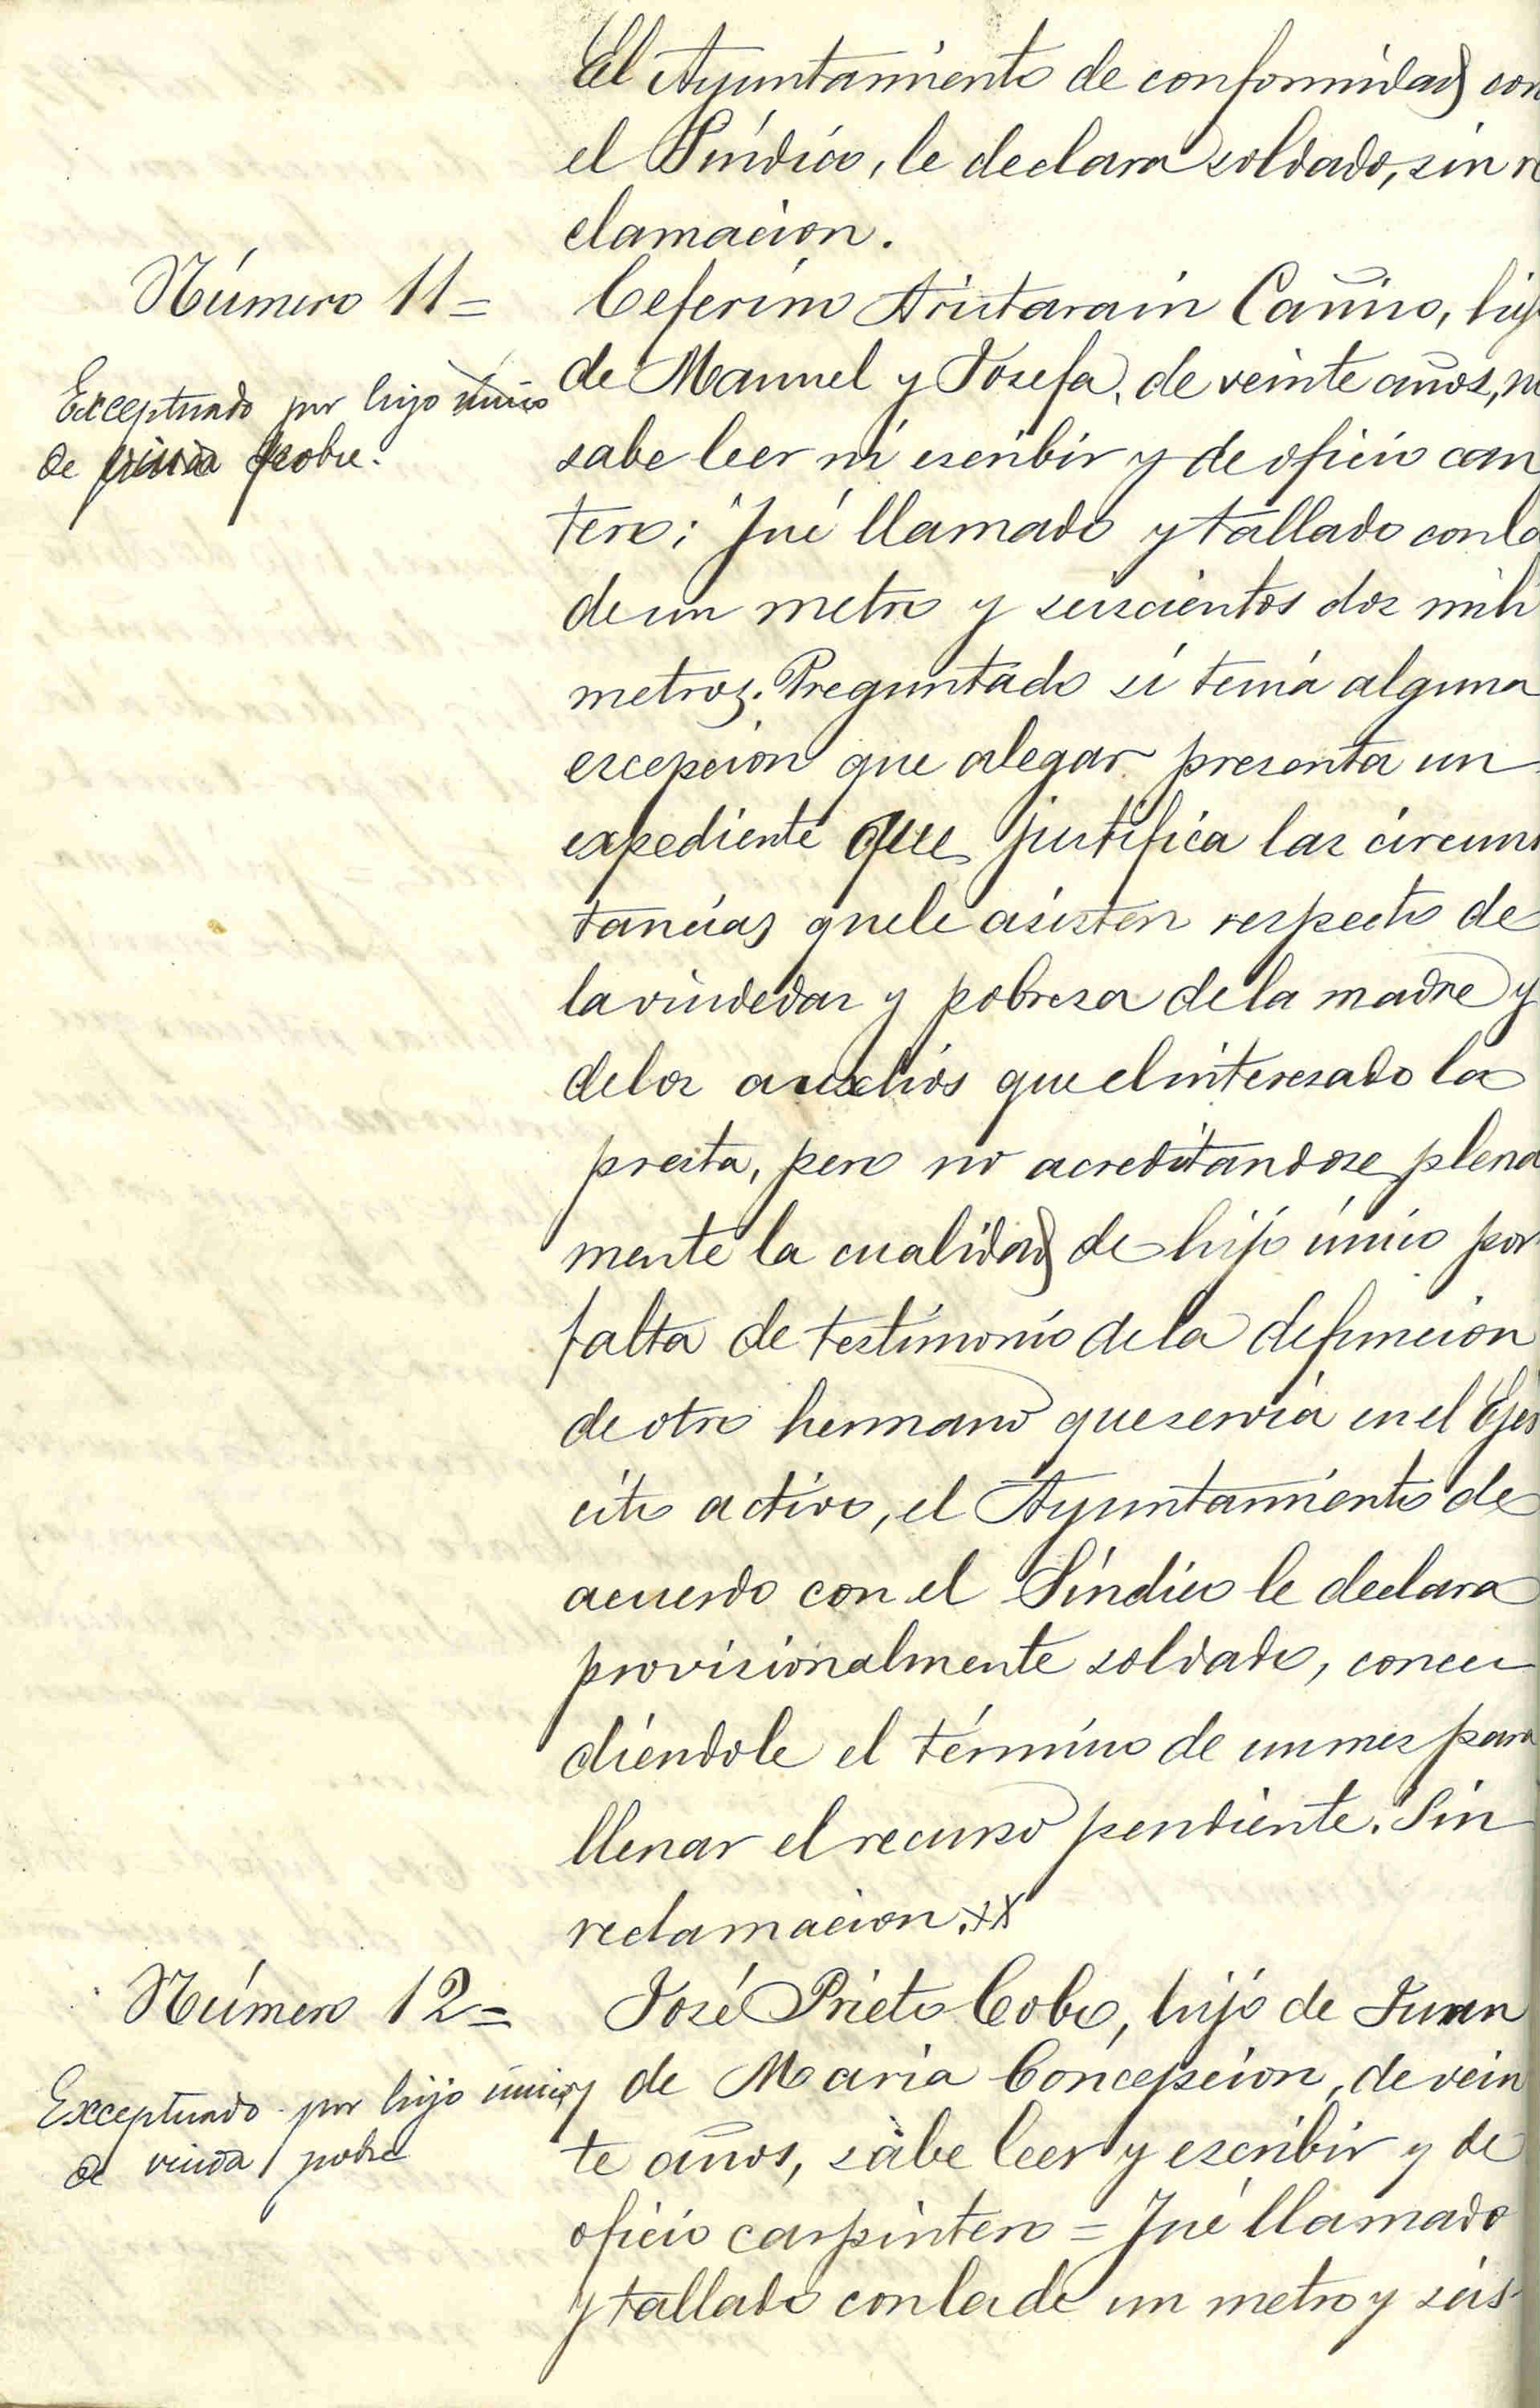 El Ayuntamiento de conformidad con
el Síndico, le declara soldado, sin re
clamacion.
Número 11=
Ceferino Aristarain Cauño, hijo
de Manuel y Josefa, de veinte años, no
Exceptuado por hijo único
de viuda pobre.
sabe leer ni escribir y de oficio can
tero; Fué llamado y tallado con la
de un metro y seiscientos dos milí
metros. Preguntado si tenía alguna
escepcion que alegar presenta un
expediente que justifica las circuns
tancias que le asisten respecto de
la viudedaz y pobresa de la madre y
de los auxclios que el interesado la
presta, pero no acreditandose plena
mente la cualidad de hijo único por
falta de testimonio de la defuncion
de otro hermano que servía en el Ejér
cito activo, el Ayuntamiento de
acuerdo con el Síndico le declara
provisionalmente soldado, conce
diéndole el término de un mes para
llenar el recurso pendiente. Sin
reclamacion.xx
Número 12=
José Prieto Cobo, hijo de Juan
y de Maria Concepcion, de vein
Exceptuado por hijo único
de viuda pobre
te años, sabe leer y escribir y de
oficio carpintero = Fué llamado
y tallado con la de un metro y seis-